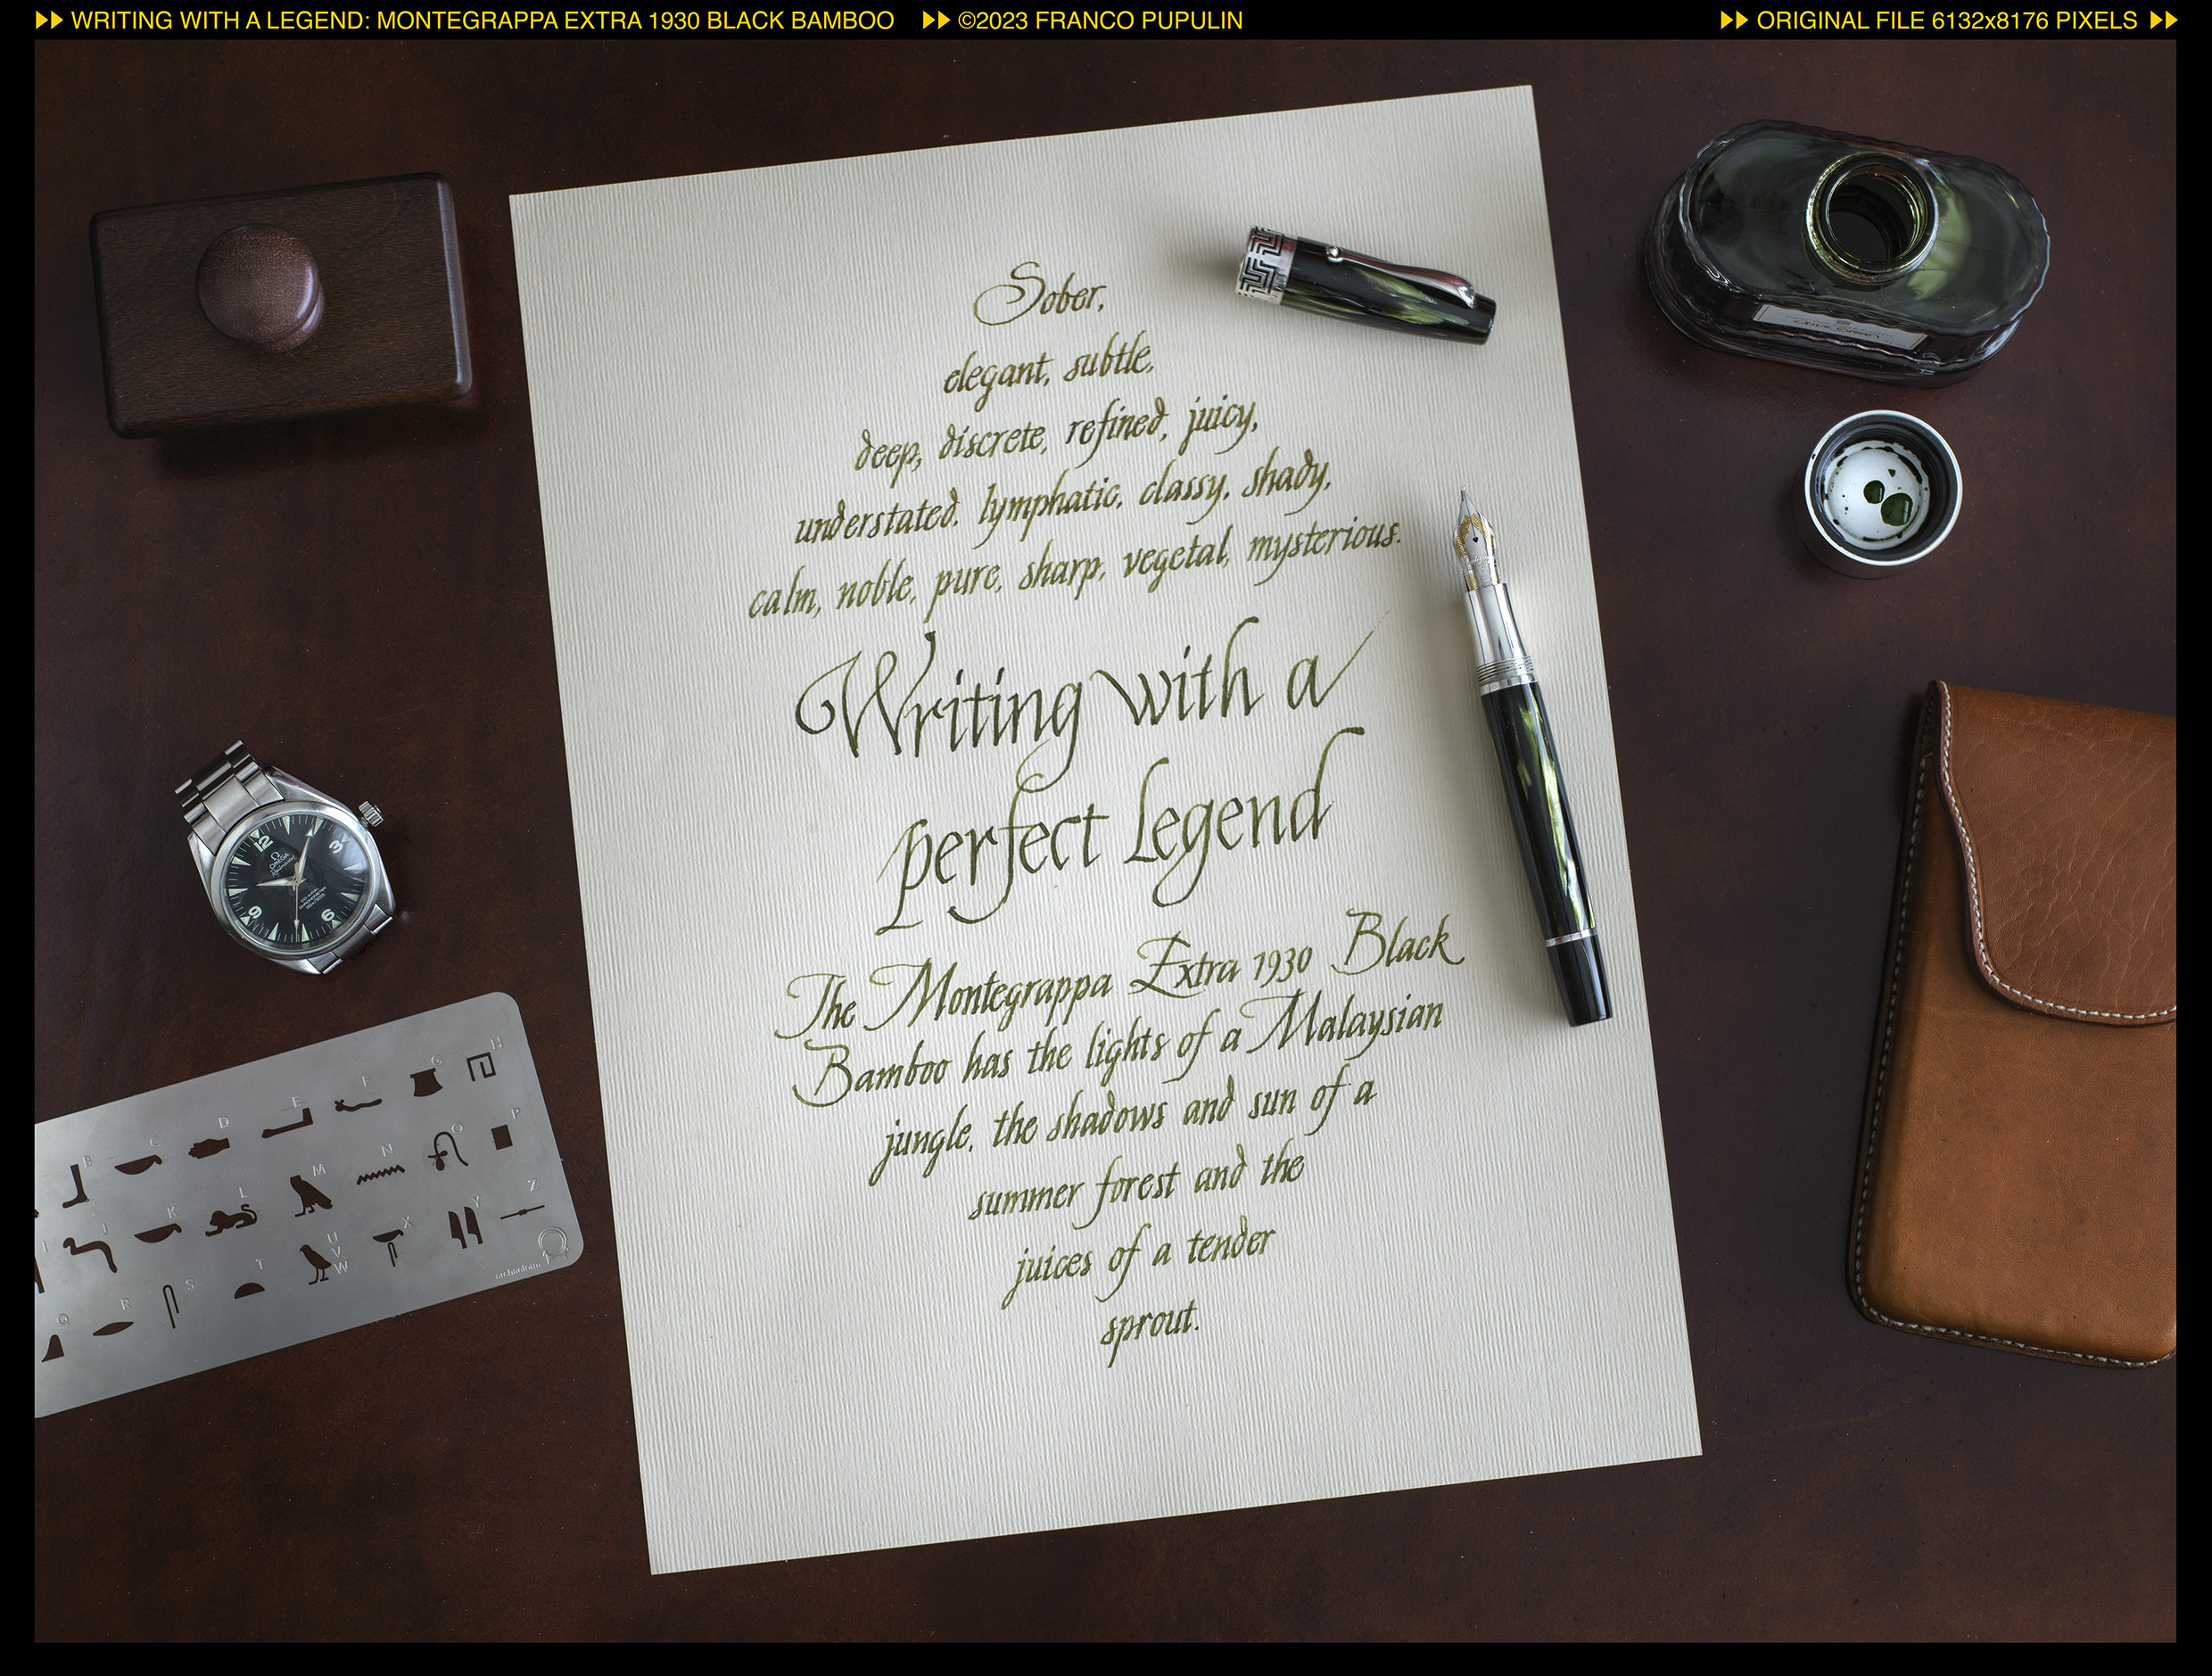 WRITING WITH A LEGEND: MONTEGRAPPA EXTRA 1930 BLACK BAMBOO ©2023 FRANCO PUPULIN ORIGINAL FILE 6132x8176 PIXELS
Sober,
elegant, subtle,
deep, discrete, refined, juicy,
understated, lymphatic, classy, shady,
calm, noble, pure, sharp, vegetal, mysterious.
Writing with a
perfect legend
The Montegrappa Extra 1930 Black
Bamboo has the lights of a Malaysian
jungle, the shadows and sun of a
summer forest and the
juices of a tender
sprout.
12
3
6
9
OMEGA
B C D E F G H
I J K L M N O P
Q R S T U V W X Y Z